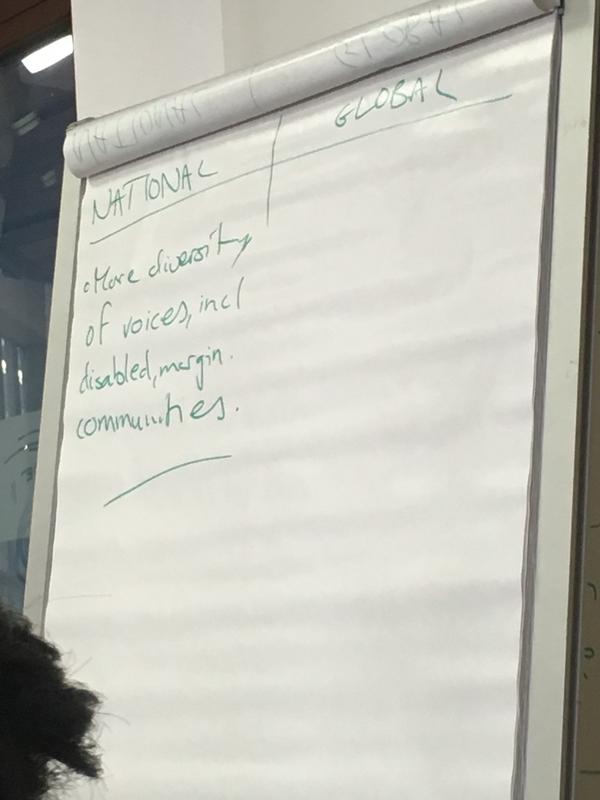 NATIONAL
GLOBAL
More diversity
of voices, incl
disabled, margin.
communities.